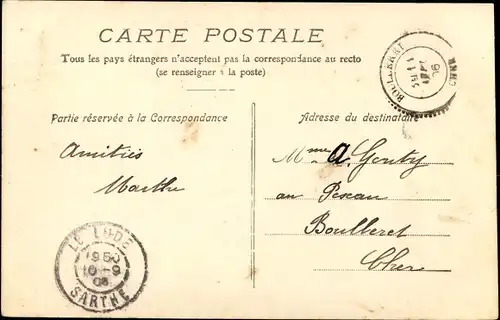 CARTE POSTALE
Tous les pays étrangers n'acceptent pas la correspondance au recto
(se renseigner à la poste)
Partie réservée à la Correspondance
Adresse du destinataire
Amitiés
Marthe
Mme A. Gouty
au Pezeau
Boulleret
Cher
LE LUDE
10-9
SARTHE
BOULLERET
CHER